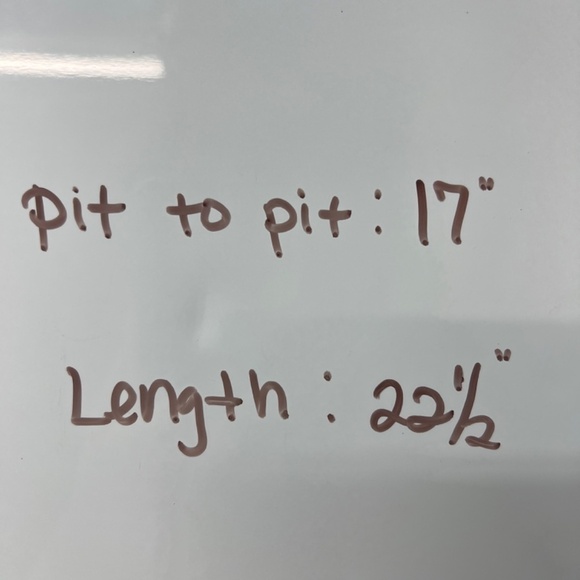 pit to pit: 17"
Length: 22 1/2"